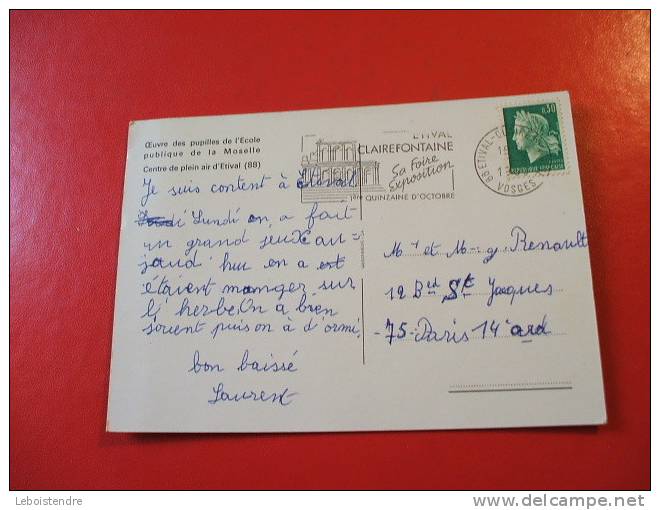 Œuvre des pupilles de l'Ecole
publique de la Moselle
Centre de plein air d'Etival (88)
Je suis content à Etival
Lundi on a fait
un grand jeux au=
jourd'hui on a est
étaient manger sur
l'herbe. On a bien
puis on à d'ormi
bon baissé
Laurent
ETIVAL
CLAIREFONTAINE
Sa Foire
Exposition
1ère QUINZAINE D'OCTOBRE
88 ETIVAL-CL
VOSGES
0,30
REPUBLIQUE FRANÇAISE
Mr et M- g. Renault
12 Bd St Jacques
-75-Paris 14 ard
Leboistendre
delcampe.net